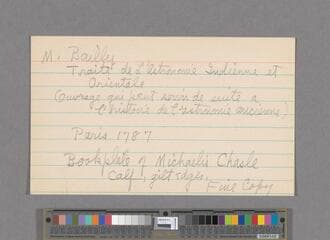 M. Bailly
Traité de L'astronomie Indienne et
Orientale
(Ouvrage qui peut servir de suite a
l'histoire de l'astronomie ancienne)
Paris 1787
Bookplate of Michaelis Chasle
Calf, gilt edges,
Fine Copy